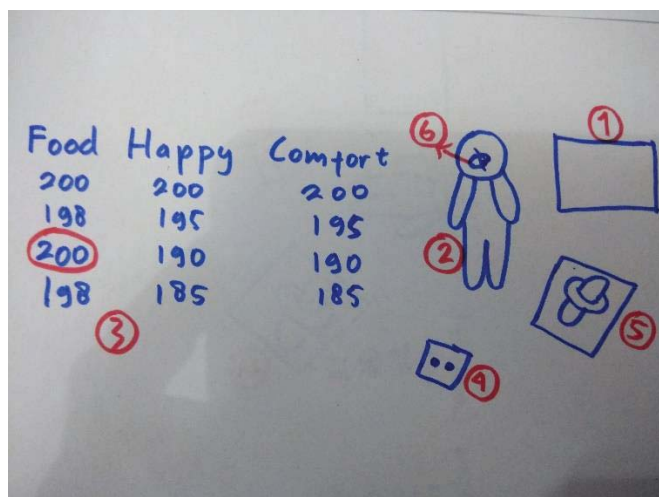 Food Happy Comfort
200 200 200
198 195 195
200 190 190
198 185 185
6
1
2
3
4
5